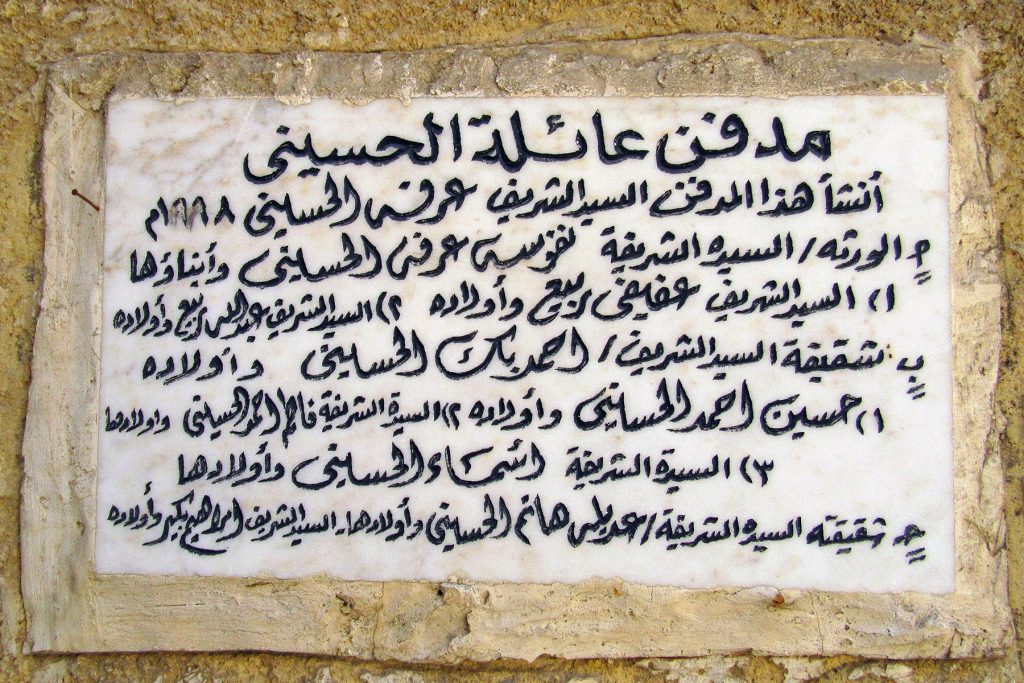 مدفن عائلة الحسيني
أنشأ هذا المدفن السيد الشريف عرفه الحسيني ١٨٨٨م
ج الورثه / السيده الشريفة نفوسه عرفه الحسيني وأبناؤها
١) السيد الشريف عفيفي ربيع وأولاده ٢) السيد الشريف عبدالله ربيع وأولاده
ب شقيقة السيد الشريف / احمد بك الحسيني وأولاده
١) حسين احمد الحسيني وأولاده ٢) السيدة الشريفة فاطمه احمد الحسيني واولادها
٣) السيدة الشريفة اسماء الحسيني وأولادها
ج شقيقته السيده الشريفة / هانم الحسيني وأولادها. السيد الشريف ابراهيم بكير وأولاده